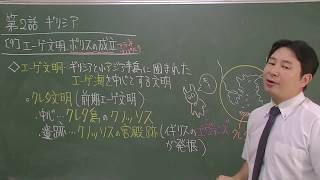 第2話 ギリシア
[4]エーゲ文明、ポリスの成立
◇エーゲ文明…ギリシアと小アジア半島に囲まれた
エーゲ海を中心とする文明
・クレタ文明(前期エーゲ文明)
・中心…クレタ島のクノッソス
・遺跡…クノッソスの宮殿跡(イギリスのエヴァンズ
が発掘)